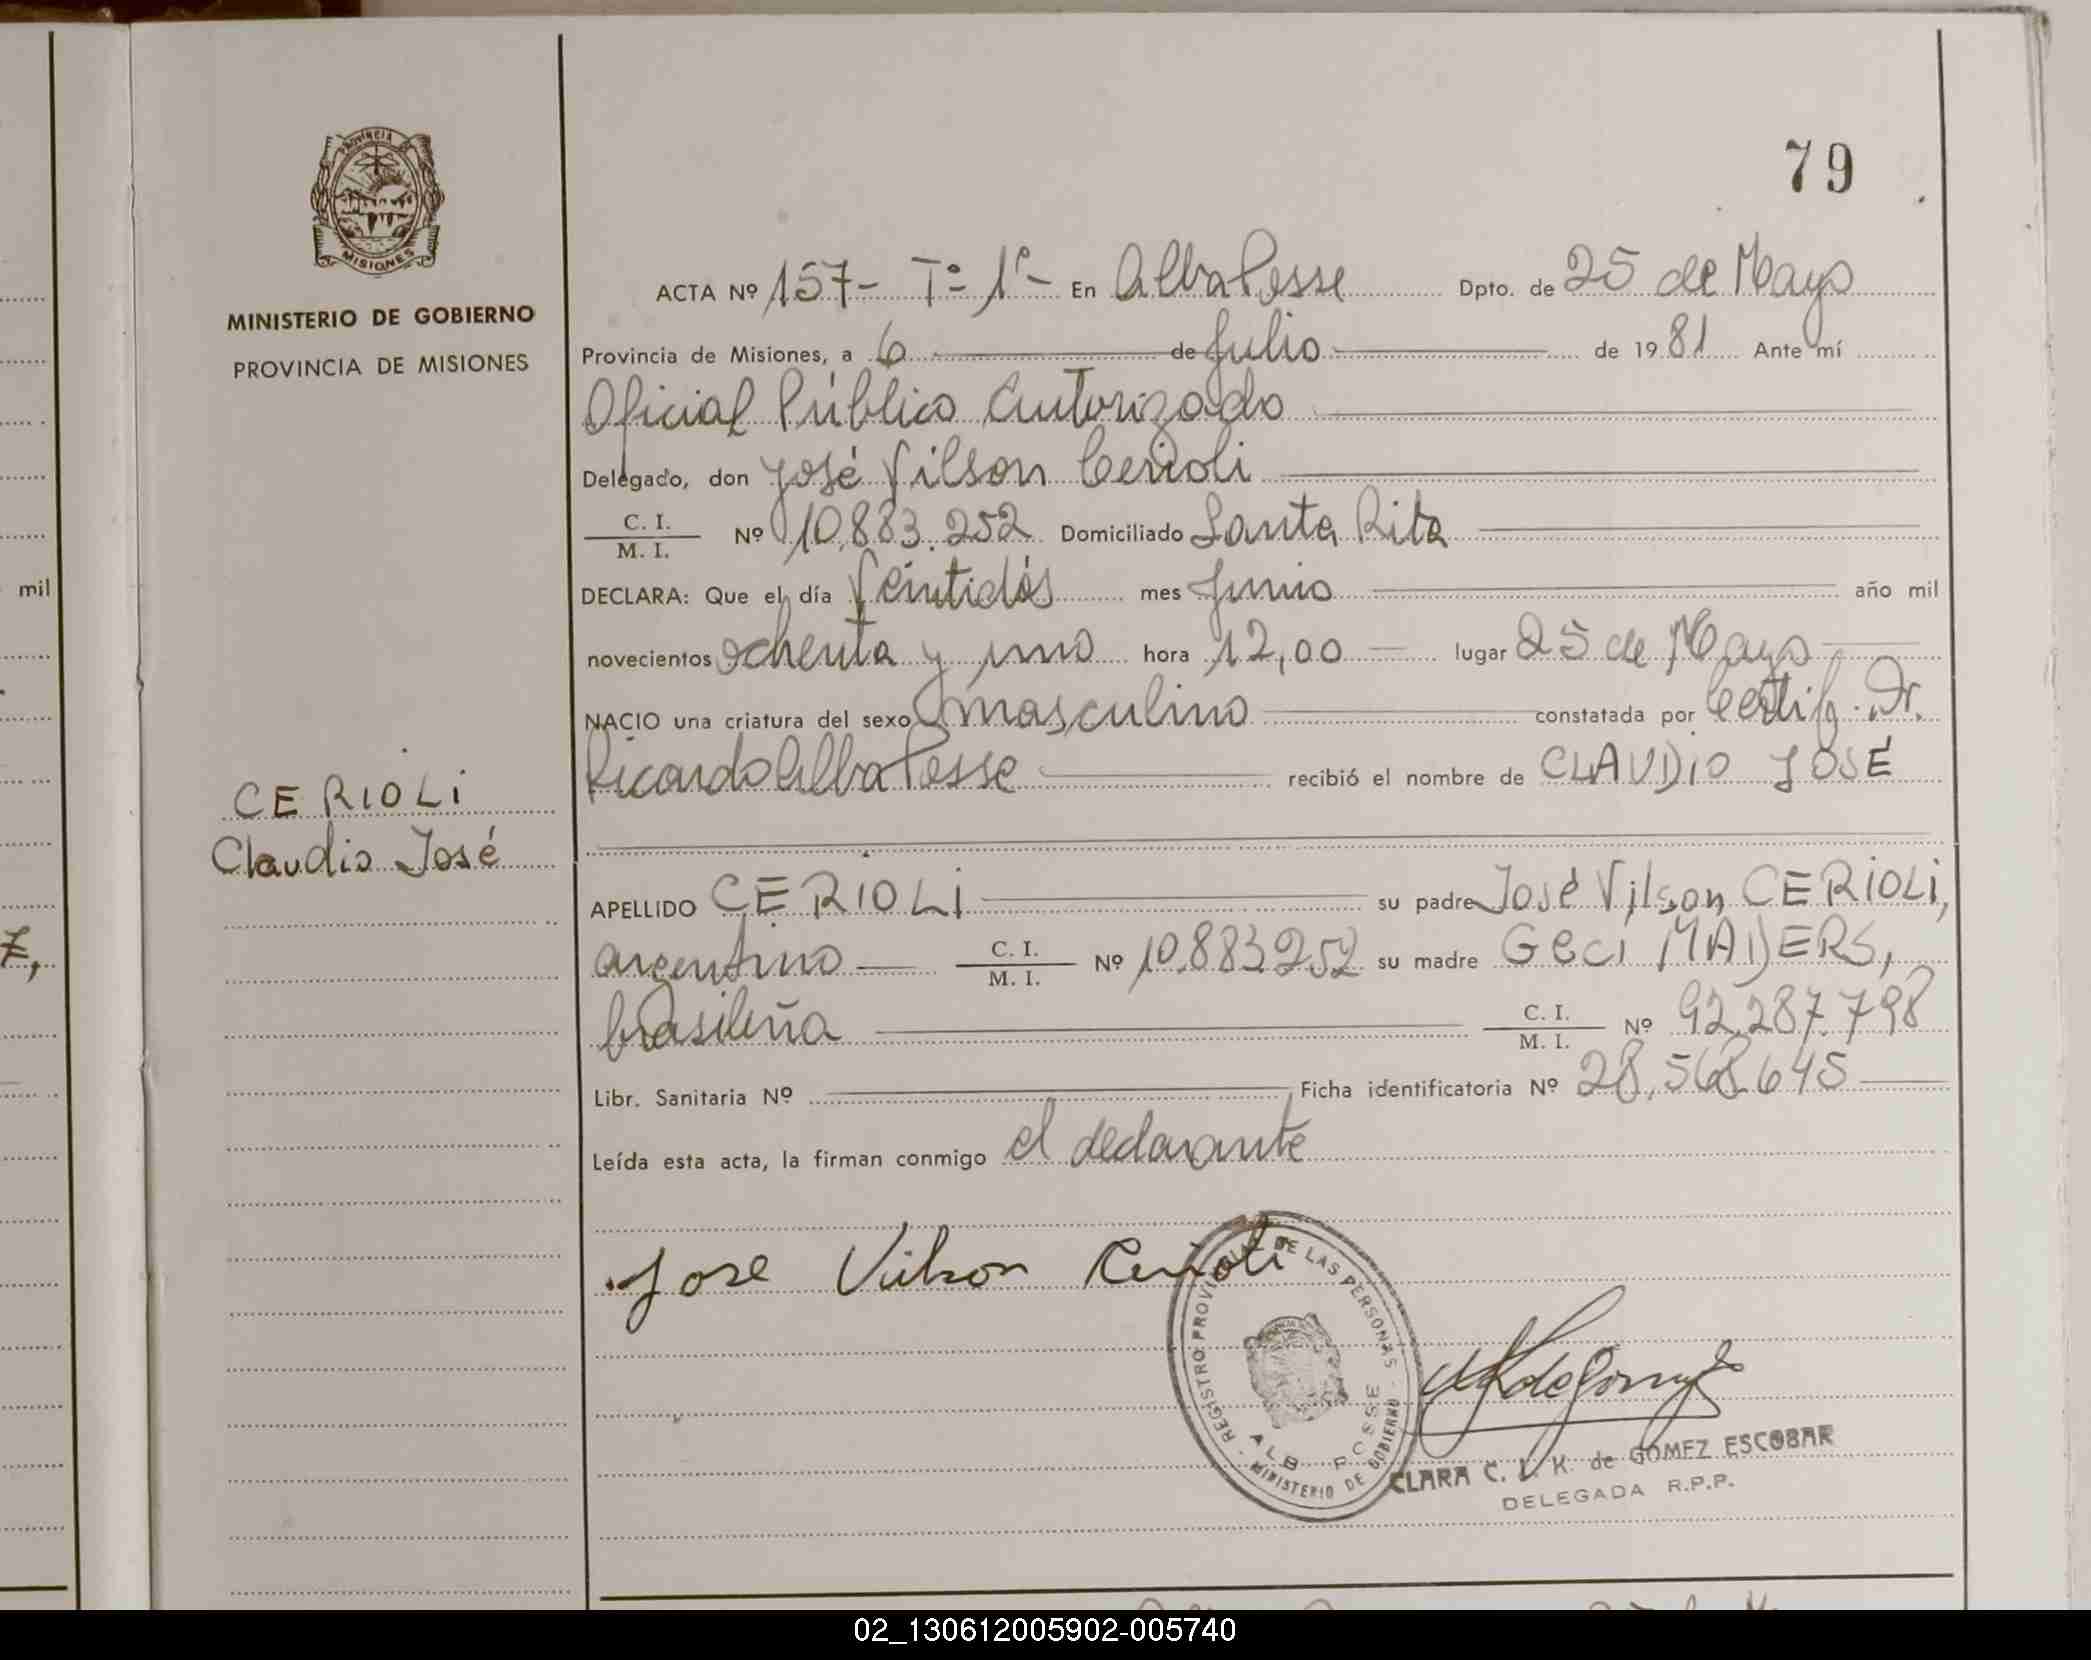 79
PROVINCIA DE
MISIONES
MINISTERIO DE GOBIERNO
PROVINCIA DE MISIONES
ACTA Nº 157- Tº 1º- En Alba Posse Dpto. de 25 de Mayo
Provincia de Misiones, a 6 de Julio de 1981 Ante mí
Oficial Público Autorizado
Delegado, don José Vilson Cerioli
C. I.
M. I. Nº 10.883.252 Domiciliado Santa Rita
DECLARA: Que el día Veintidós mes Junio año mil
novecientos ochenta y uno hora 12,00 lugar 25 de Mayo
NACIO una criatura del sexo masculino constatada por Certif. Dr.
Ricardo Alba Posse recibió el nombre de CLAUDIO JOSÉ
CERIOLI
Claudio José
APELLIDO CERIOLI su padre José Vilson CERIOLI,
argentino C. I.
M. I. Nº 10.883252 su madre Geci MADERS,
brasileña C. I.
M. I. Nº 92.287.798
Libr. Sanitaria Nº Ficha identificatoria Nº 28.568.645
Leída esta acta, la firman conmigo el declarante
Jose Vilson Cerioli
REGISTRO PROVINCIAL DE LAS PERSONAS
MINISTERIO DE GOBIERNO
CLARA C. L. K. de GOMEZ ESCOBAR
DELEGADA R.P.P.
mil
z,
02_130612005902-005740